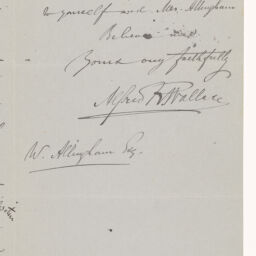 to yourself and Mrs. Allingham
Believe me
Yours very faithfully
Alfred R Wallace
W. Allingham Esq.